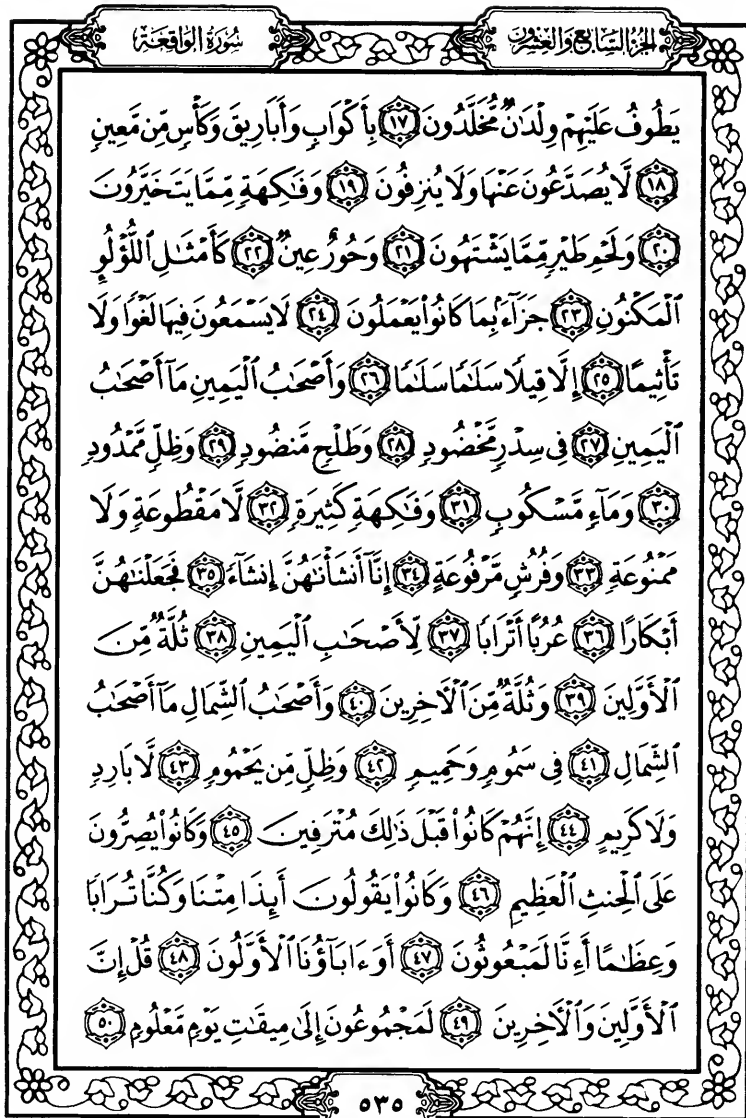 الجزء السابع والعشرون
سُورَةُ الوَاقِعَةِ
يَطُوفُ عَلَيْهِمْ وِلْدَٰنٌ مُّخَلَّدُونَ ١٧ بِأَكْوَابٍ وَأَبَارِيقَ وَكَأْسٍ مِّن مَّعِينٍ
١٨ لَّا يُصَدَّعُونَ عَنْهَا وَلَا يُنزِفُونَ ١٩ وَفَٰكِهَةٍ مِّمَّا يَتَخَيَّرُونَ
٢٠ وَلَحْمِ طَيْرٍ مِّمَّا يَشْتَهُونَ ٢١ وَحُورٌ عِينٌ ٢٢ كَأَمْثَٰلِ ٱللُّؤْلُوِٕ
ٱلْمَكْنُونِ ٢٣ جَزَآءًۢ بِمَا كَانُوا۟ يَعْمَلُونَ ٢٤ لَا يَسْمَعُونَ فِيهَا لَغْوًا وَلَا
تَأْثِيمًا ٢٥ إِلَّا قِيلًا سَلَٰمًا سَلَٰمًا ٢٦ وَأَصْحَٰبُ ٱلْيَمِينِ مَآ أَصْحَٰبُ
ٱلْيَمِينِ ٢٧ فِى سِدْرٍ مَّخْضُودٍ ٢٨ وَطَلْحٍ مَّنضُودٍ ٢٩ وَظِلٍّ مَّمْدُودٍ
٣٠ وَمَآءٍ مَّسْكُوبٍ ٣١ وَفَٰكِهَةٍ كَثِيرَةٍ ٣٢ لَّا مَقْطُوعَةٍ وَلَا
مَمْنُوعَةٍ ٣٣ وَفُرُشٍ مَّرْفُوعَةٍ ٣٤ إِنَّآ أَنشَأْنَٰهُنَّ إِنشَآءً ٣٥ فَجَعَلْنَٰهُنَّ
أَبْكَارًا ٣٦ عُرُبًا أَتْرَابًا ٣٧ لِّأَصْحَٰبِ ٱلْيَمِينِ ٣٨ ثُلَّةٌ مِّنَ
ٱلْأَوَّلِينَ ٣٩ وَثُلَّةٌ مِّنَ ٱلْءَاخِرِينَ ٤٠ وَأَصْحَٰبُ ٱلشِّمَالِ مَآ أَصْحَٰبُ
ٱلشِّمَالِ ٤١ فِى سَمُومٍ وَحَمِيمٍ ٤٢ وَظِلٍّ مِّن يَحْمُومٍ ٤٣ لَّا بَارِدٍ
وَلَا كَرِيمٍ ٤٤ إِنَّهُمْ كَانُوا۟ قَبْلَ ذَٰلِكَ مُتْرَفِينَ ٤٥ وَكَانُوا۟ يُصِرُّونَ
عَلَى ٱلْحِنثِ ٱلْعَظِيمِ ٤٦ وَكَانُوا۟ يَقُولُونَ أَئِذَا مِتْنَا وَكُنَّا تُرَابًا
وَعِظَٰمًا أَءِنَّا لَمَبْعُوثُونَ ٤٧ أَوَءَابَآؤُنَا ٱلْأَوَّلُونَ ٤٨ قُلْ إِنَّ
ٱلْأَوَّلِينَ وَٱلْءَاخِرِينَ ٤٩ لَمَجْمُوعُونَ إِلَىٰ مِيقَٰتِ يَوْمٍ مَّعْلُومٍ ٥٠
٥٣٥